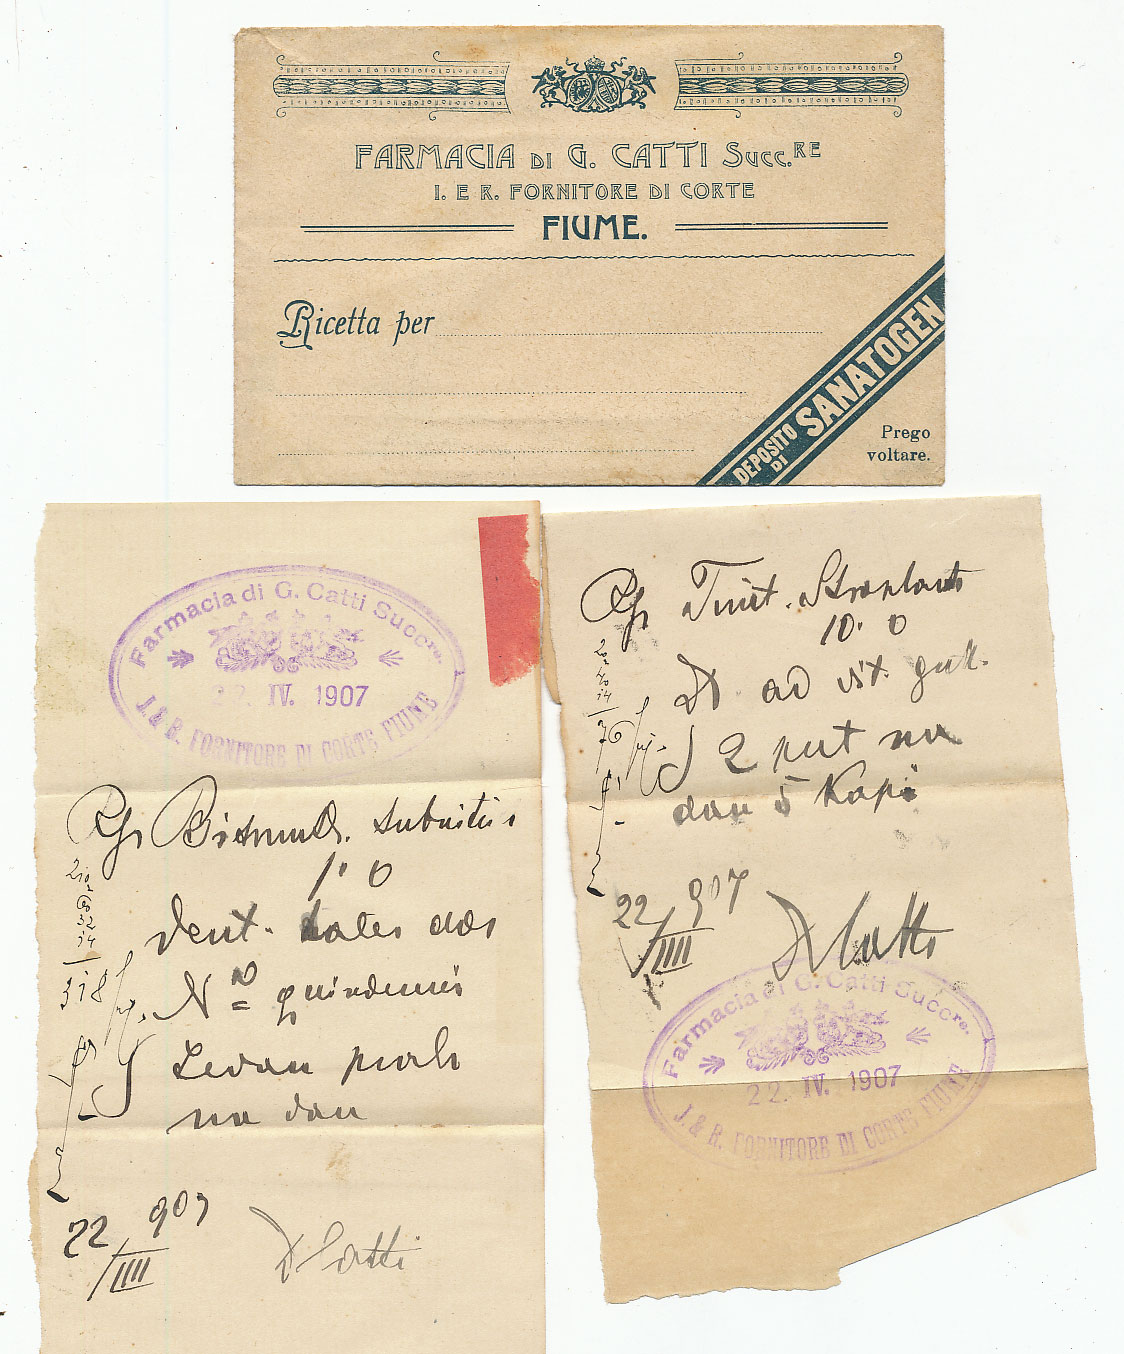 FARMACIA DI G. CATTI SUCC.RE
I. E R. FORNITORE DI CORTE
FIUME.
Ricetta per
DEPOSITO DI SANATOGEN
Prego
voltare.
Farmacia di G. Catti Succre.
22. IV. 1907
I. & R. FORNITORE DI CORTE FIUME
Rp Bismuth. subnitric
1. 0
Dent. tales dos
No quindecim
S
na dan
22/IIII 907
D Catti
Rp Tinct. Strophant
10. 0
D. ad vit. gutt.
S 2 put na
dan 5 Kapi
22/IIII 907
D Catti
Farmacia di G. Catti Succre.
22. IV. 1907
I. & R. FORNITORE DI CORTE FIUME